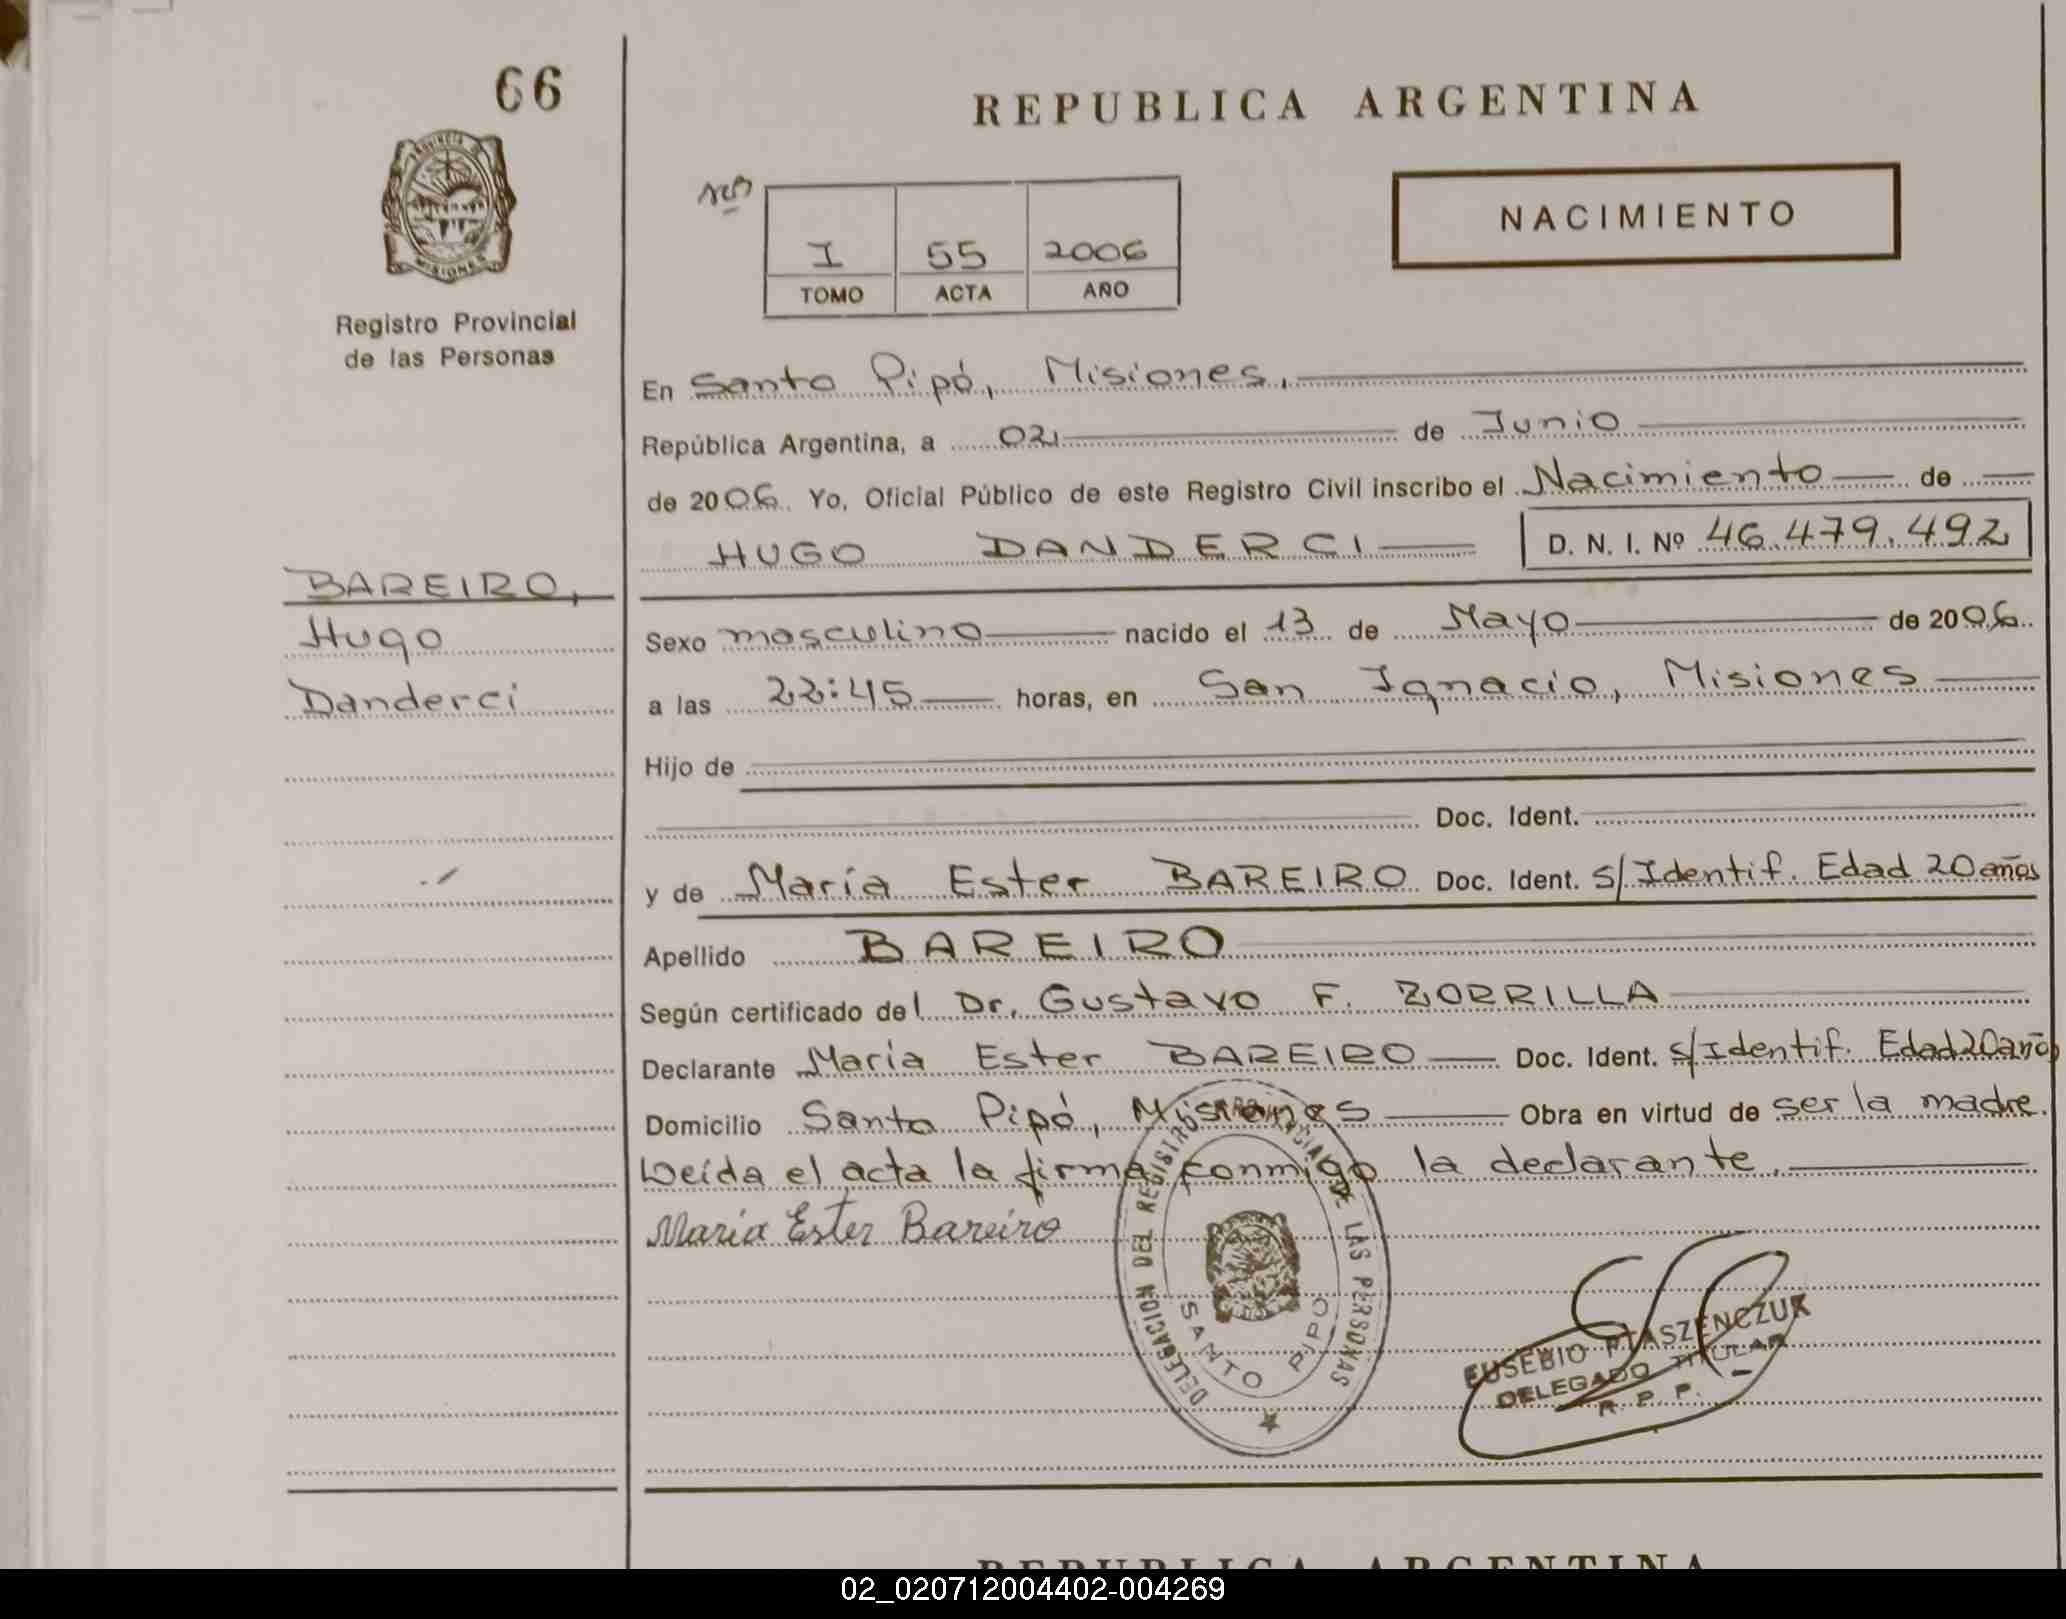 66
REPUBLICA ARGENTINA
NACIMIENTO
PROVINCIA DE
MISIONES
Registro Provincial
de las Personas
I 55 2006
TOMO ACTA AÑO
En Santo Pipó, Misiones,
República Argentina, a 02 de Junio
de 2006. Yo, Oficial Público de este Registro Civil inscribo el Nacimiento de
HUGO DANDERCI D. N. I. Nº 46.479.492
BAREIRO,
Hugo
Danderci
Sexo masculino nacido el 13 de Mayo de 2006.
a las 22:45 horas, en San Ignacio, Misiones
Hijo de
Doc. Ident.
y de María Ester BAREIRO Doc. Ident. S/Identif. Edad 20 años
Apellido BAREIRO
Según certificado del Dr. Gustavo F. ZORRILLA
Declarante María Ester BAREIRO Doc. Ident. S/Identif. Edad 20 años
Domicilio Santo Pipó, Misiones Obra en virtud de ser la madre.
Leída el acta la firma conmigo la declarante.
María Ester Bareiro
DELEGACION DEL REGISTRO PROVINCIAL DE LAS PERSONAS
SANTO PIPO
EUSEBIO PTASZENCZUK
DELEGADO TITULAR
R. P. P.
REPUBLICA ARGENTINA
02_020712004402-004269